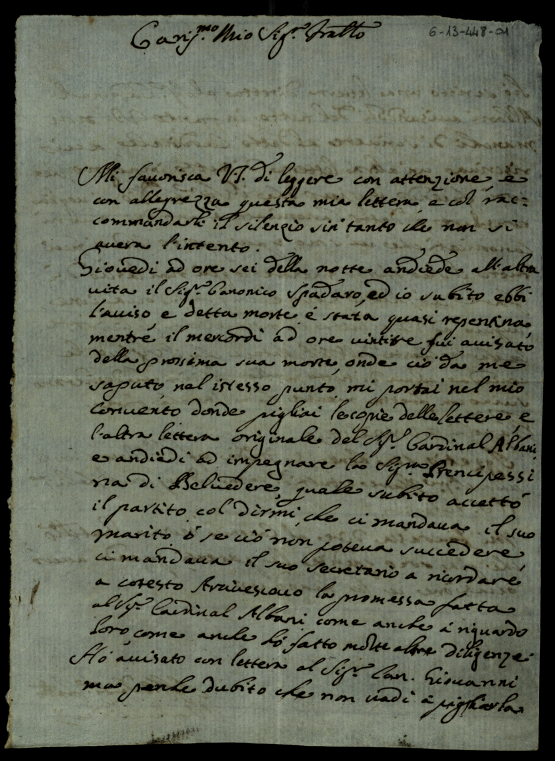 6-13-448-01
Caris.mo Mio Sig.r Fratto
Mi favorisca V.S. di leggere con attenzione e
con allegrezza questa mia lettera e col rac=
commandarli il silenzio sin tanto che non si
avera l'intento.
Giovedi ad ore sei della notte andiede all'altra
vita il Sig.r Canonico Spadaro, ed io subito ebbi
l'aviso e detta morte é stata quasi repentina
mentré il mercordi ad ore vintitre fui avisato
della prossima sua morte, onde ció da me
saputo nel istesso punto mi portai nel mio
Convento donde pigliai le copie delle lettere e
l'altra lettera originale del Sig.r Cardinal Albani,
e andiedi ad impegnare la Sig.ra Principessi
na di Belvedere, quale subito accettó
il partito col dirmi, che ci mandava il suo
marito ó se ció non poteva succedere
ci mandava il suo secretario a ricordaré
a cotesto Arcivescovo la promessa fatta
al Sig.r Cardinal Albani come anche á riguardo
loro come anche hó fatto molte altre diligenze.
Hó avisato con lettera al Sig.r Can. Giovanni
ma perche dubito che non vadi á pigliarla